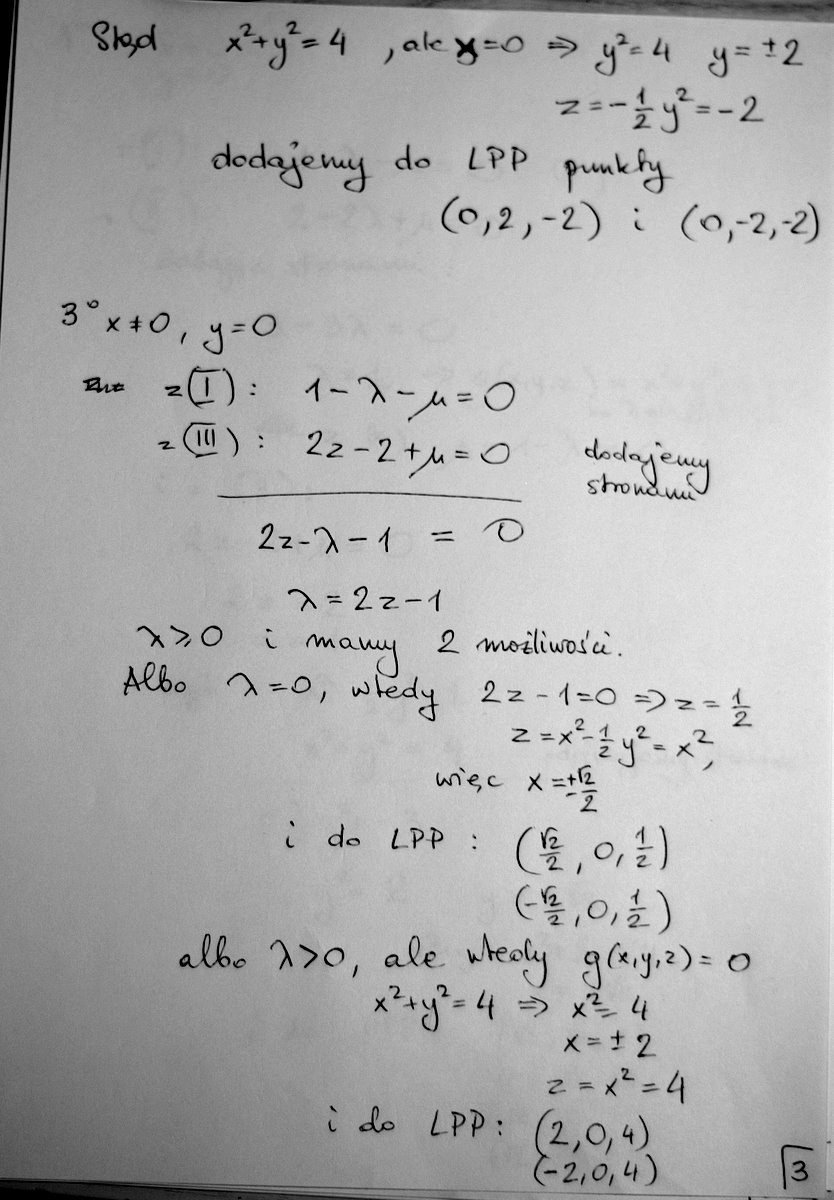 Stąd x²+y²=4 , ale x=0 ⇒ y²=4 y=±2
z=-1/2 y²=-2
dodajemy do LPP punkty
(0,2,-2) i (0,-2,-2)
3° x≠0, y=0
z (I): 1-λ-μ=0
z (III): 2z-2+μ=0 dodajemy
stronami
2z-λ-1 = 0
λ=2z-1
λ≥0 i mamy 2 możliwości.
Albo λ=0, wtedy 2z-1=0 ⇒ z=1/2
z=x²-1/2 y²=x²,
więc x=±√2/2
i do LPP : (√2/2, 0, 1/2)
(-√2/2, 0, 1/2)
albo λ>0, ale wtedy g(x,y,z)=0
x²+y²=4 ⇒ x²=4
x=±2
z=x²=4
i do LPP: (2,0,4)
(-2,0,4)
3